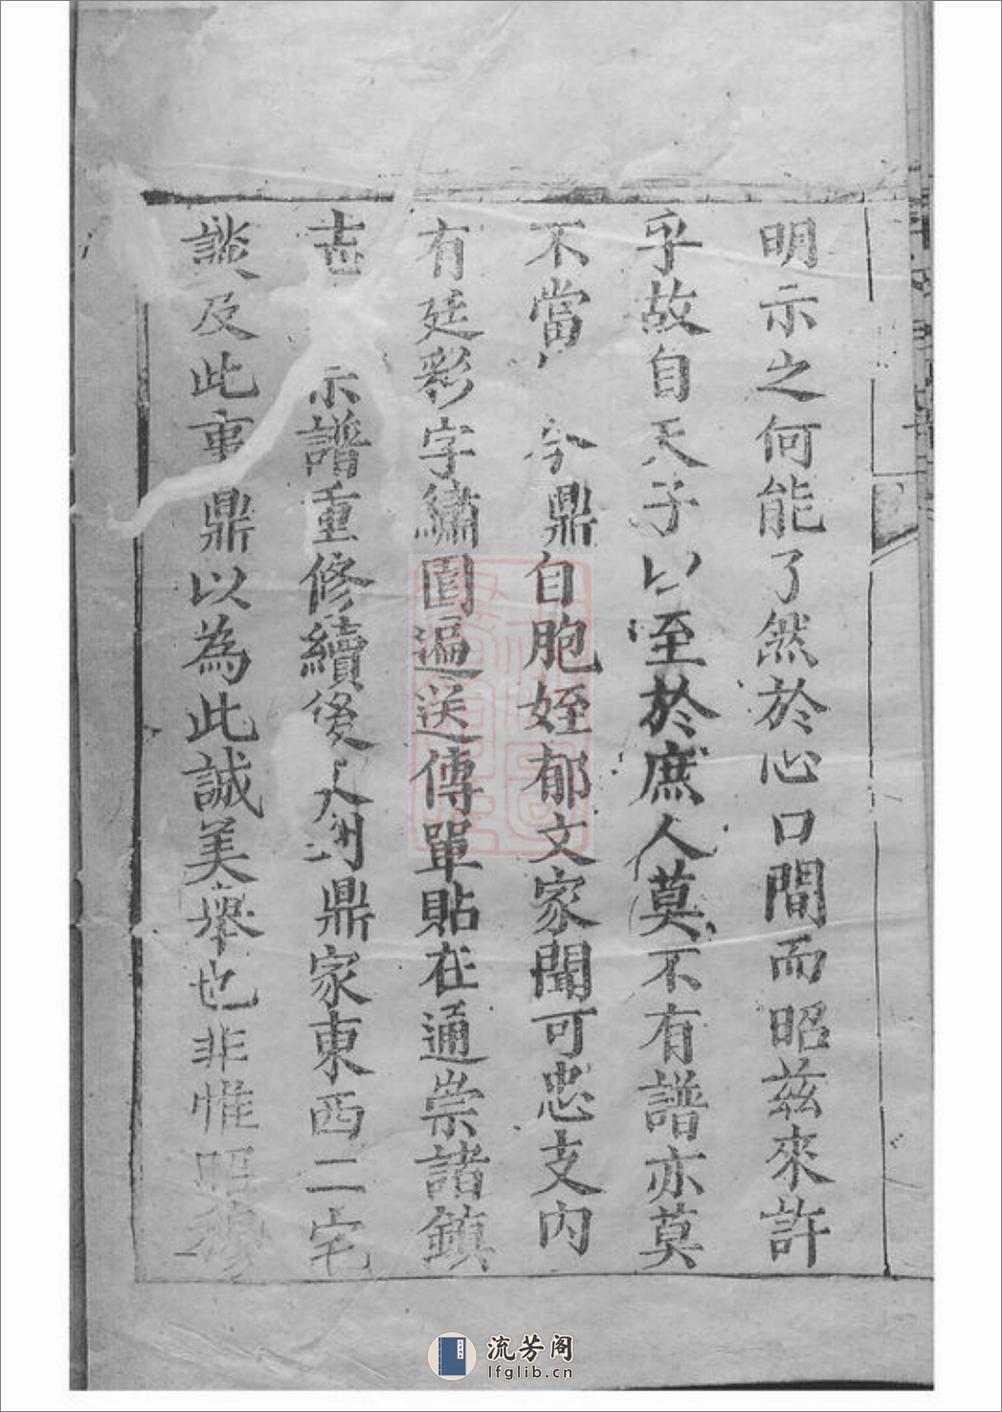 明示之何能了然於心口間而昭茲來許
乎故自天子以至於庶人莫不有譜亦莫
不當 今鼎自胞姪郁文家聞可忠支內
有廷彩字繡圃遍送傳單貼在通崇諸鎮
示譜重修續後人到鼎家東西二宅
談及此事鼎以為此誠美舉也非惟昭穆
流芳阁
lfglib.cn